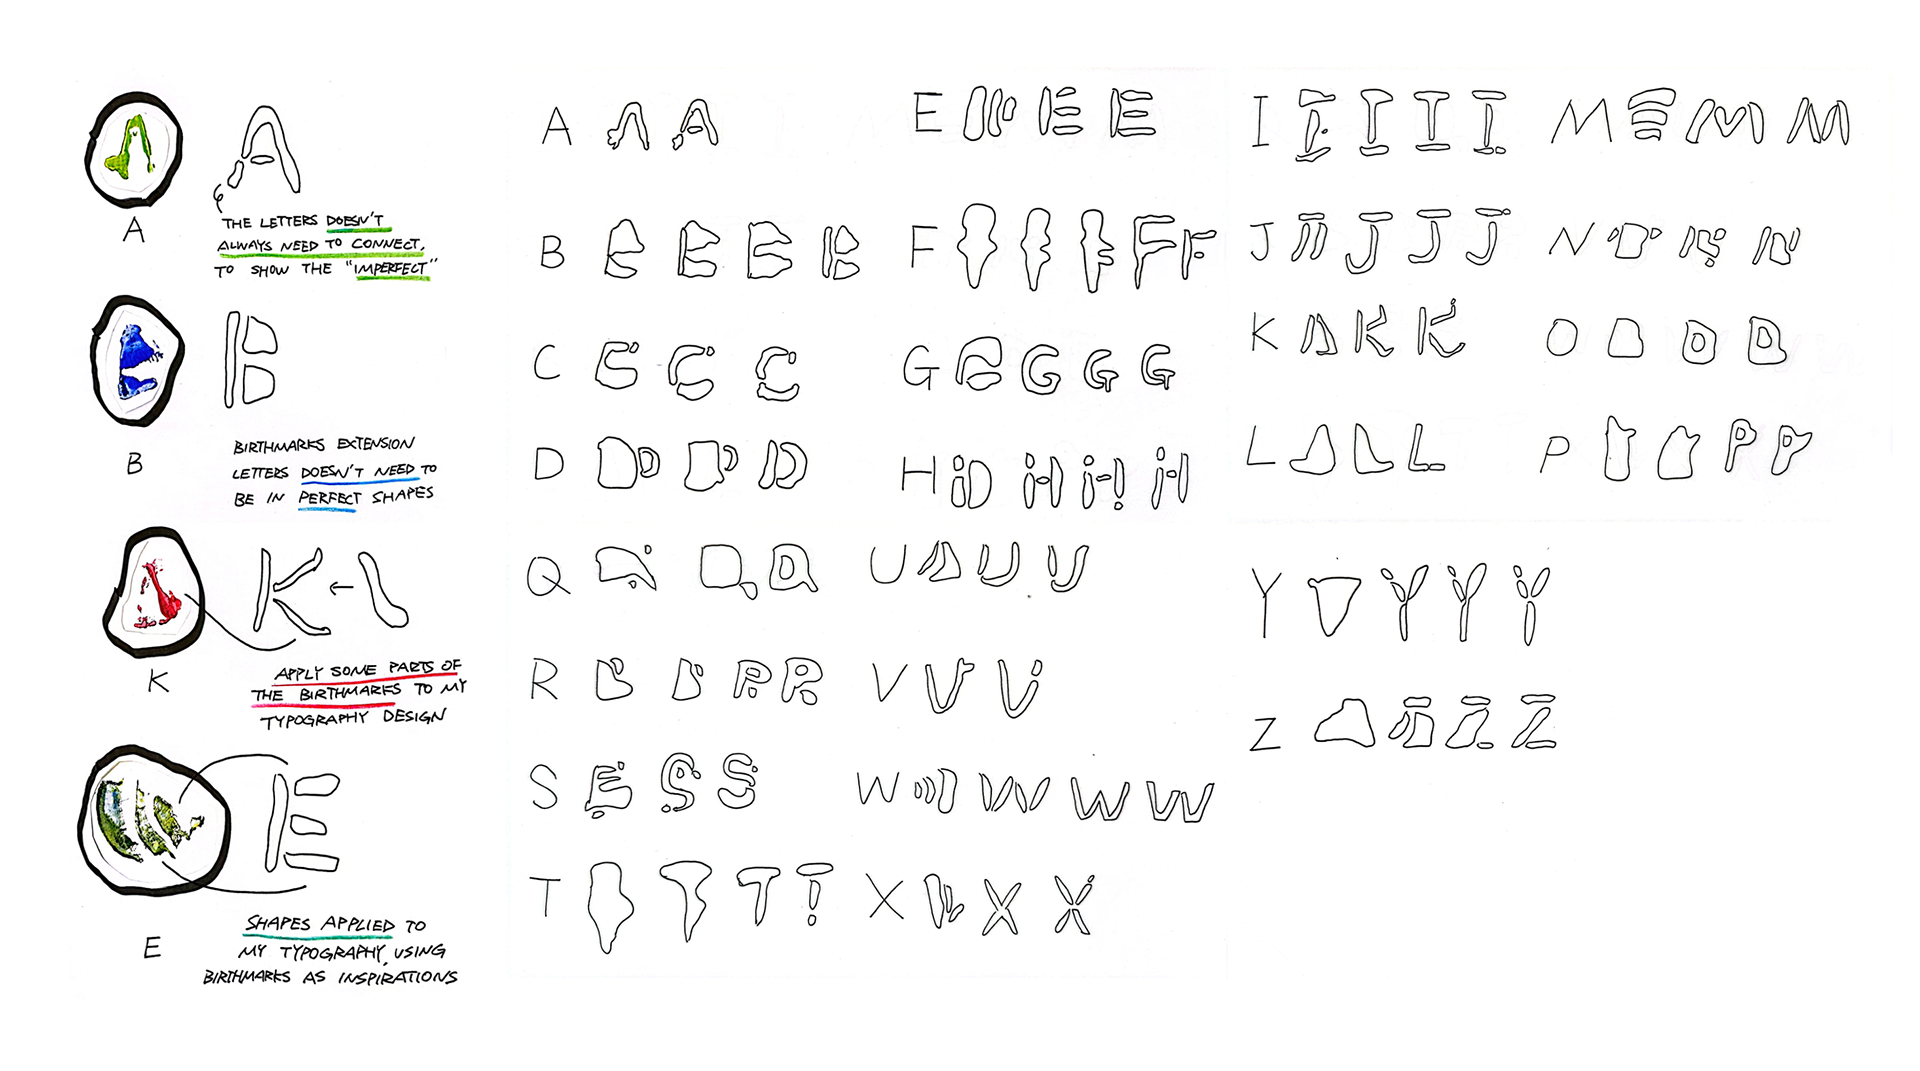 A
THE LETTERS DOESN'T
ALWAYS NEED TO CONNECT,
TO SHOW THE "IMPERFECT"
A
B
BIRTHMARKS EXTENSION
LETTERS DOESN'T NEED TO
BE IN PERFECT SHAPES
B
K ← 
APPLY SOME PARTS OF
THE BIRTHMARKS TO MY
TYPOGRAPHY DESIGN
K
E
SHAPES APPLIED TO
MY TYPOGRAPHY, USING
BIRTHMARKS AS INSPIRATIONS
E
A A A
B B B B B
C C C C
D D D D
E E E E
F F F F F F
G G G G G
H H H H H
Q Q Q Q
R R R R R
S S S S
T T T T T
U U U U
V V V
W W W W W
X X X X
I I I I I
J J J J J
K K K K
L L L L
M M M M
N N N N
O O O O
P P P P P
Y Y Y Y Y
Z Z Z Z Z